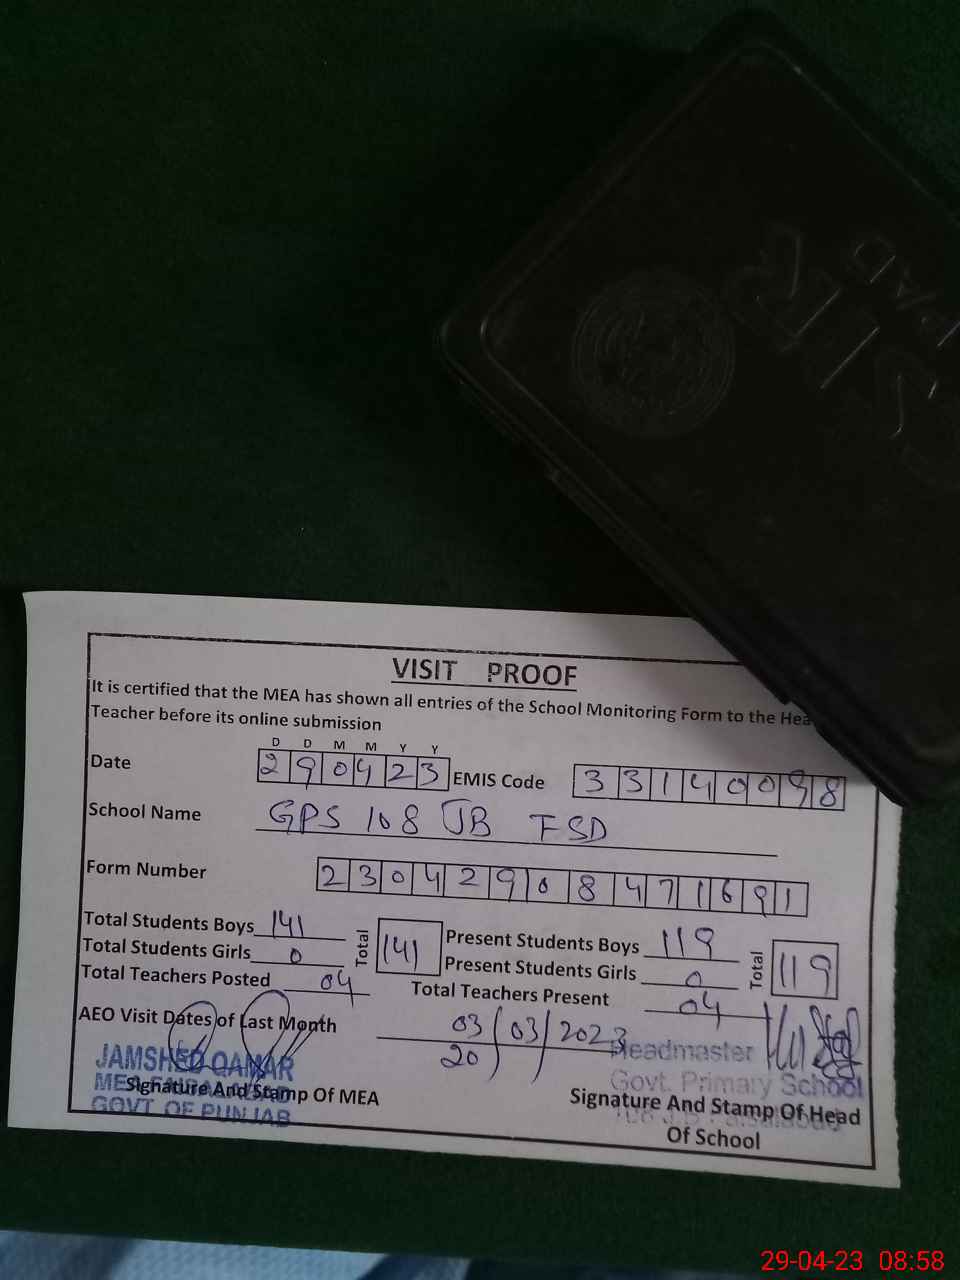 SIR
PAD
VISIT PROOF
It is certified that the MEA has shown all entries of the School Monitoring Form to the Hea
Teacher before its online submission
D D M M Y Y
Date 290423 EMIS Code 33140098
School Name GPS 108 JB FSD
Form Number 23042908471691
Total Students Boys 141 Total 141 Present Students Boys 119 Total 119
Total Students Girls 0 Present Students Girls 0
Total Teachers Posted 04 Total Teachers Present 04
AEO Visit Dates of Last Month 03/03/2023
20
JAMSHED QAMAR
MEA FAISALABAD
GOVT. OF PUNJAB
Signature And Stamp Of MEA
Headmaster
Govt. Primary School
108 J.B Faisalabad
Signature And Stamp Of Head
Of School
29-04-23 08:58